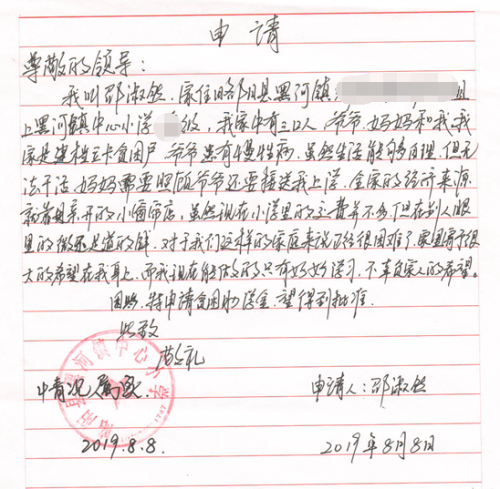 申请
尊敬的领导：
我叫邵淑然,家住略阳县黑河镇
上黑河镇中心小学 级，我家中有三口人，爷爷妈妈和我，我
家是建档立卡贫困户，爷爷患有慢性病，虽然生活能够自理，但无
法干活，妈妈需要照顾爷爷还要接送我上学，全家的经济来源
就靠母亲开的小商店，虽然现在小学里的费并不多，但在别人眼
里的微不足道的钱，对于我们这样的家庭来说已经很困难了，家里寄予很
大的希望在我身上，而我现在能做的只有好好学习，不辜负家人的希望。
因此，特申请贫困助学金，望得到批准.
此致
敬礼
情况属实. 申请人：邵淑然
2019.8.8. 2019年8月8日